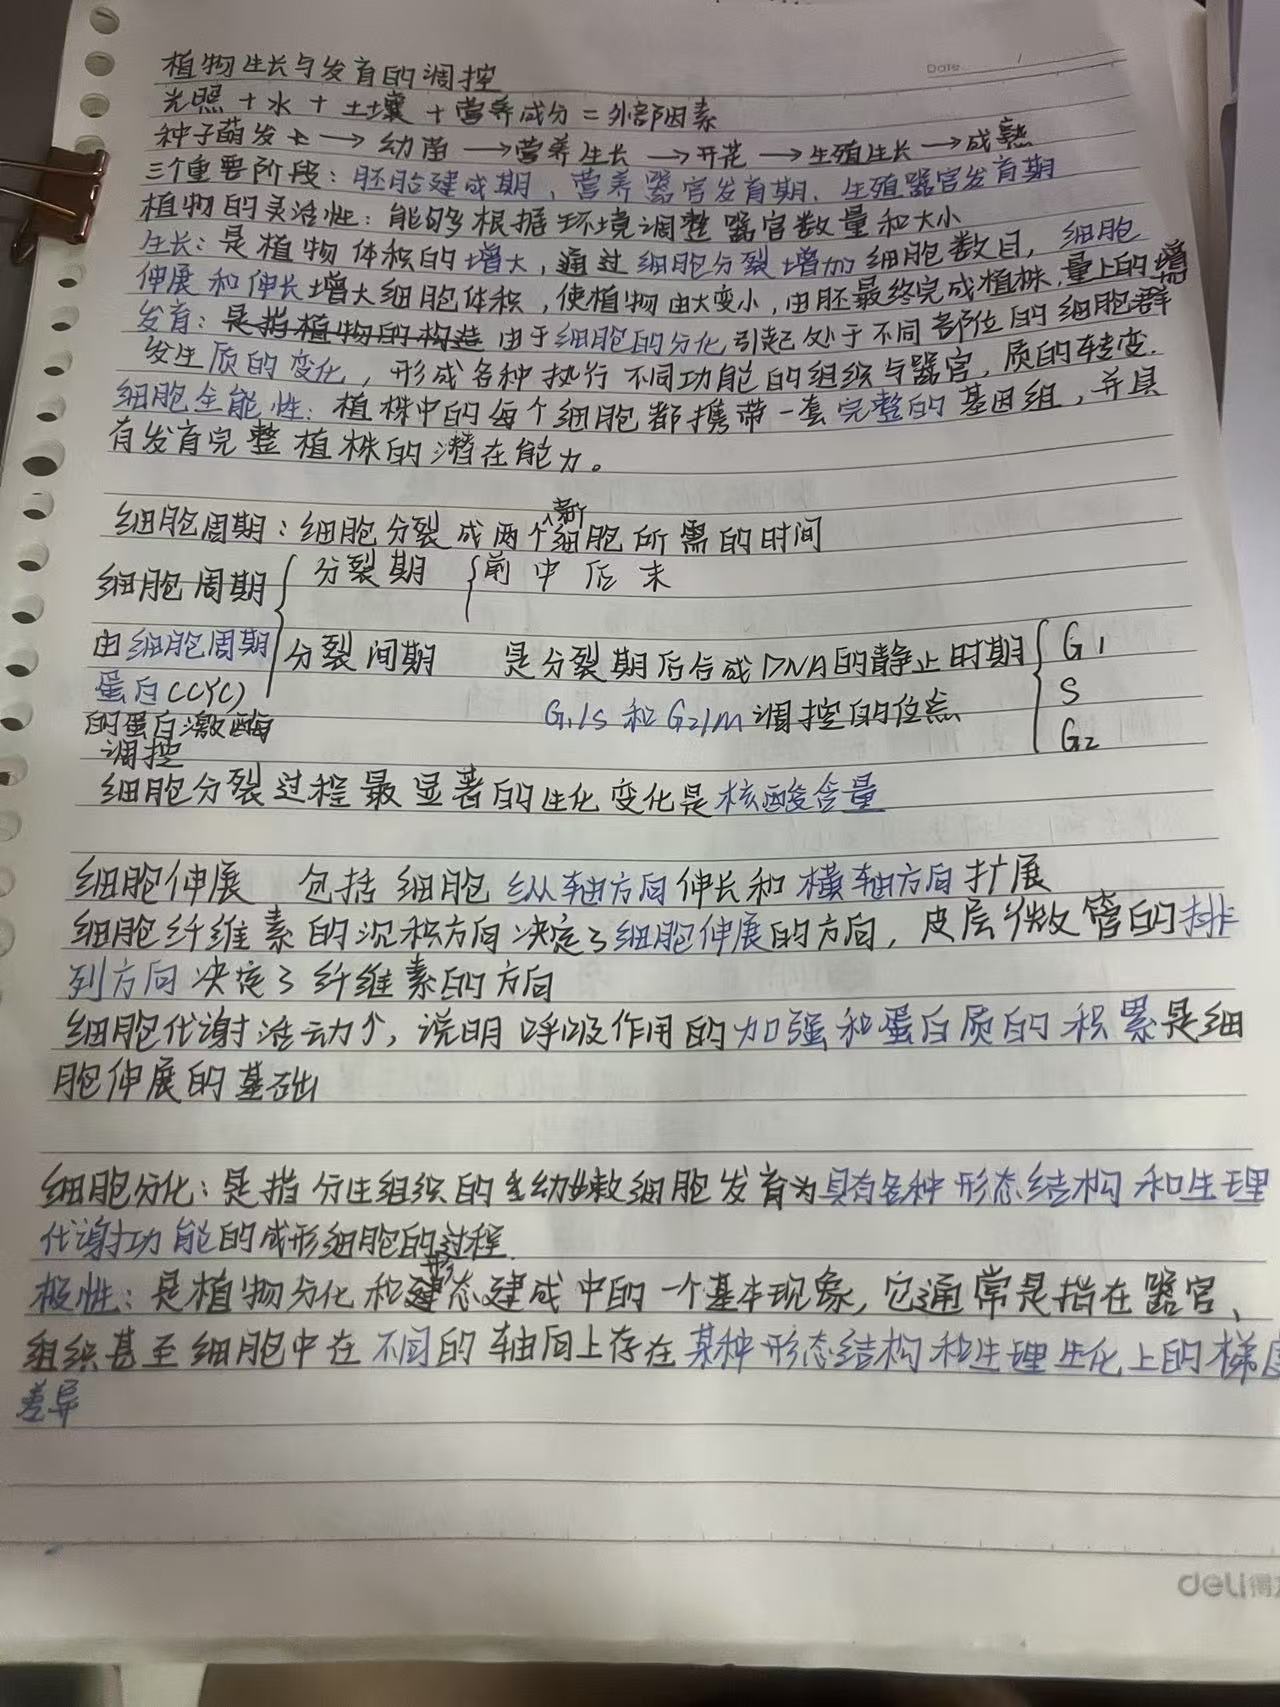 Date /
植物生长与发育的调控
光照 + 水 + 土壤 + 营养成分 = 外部因素
种子萌发 → 幼苗 → 营养生长 → 开花 → 生殖生长 → 成熟
三个重要阶段：胚胎建成期，营养器官发育期、生殖器官发育期
植物的灵活性：能够根据环境调整器官数量和大小
生长：是植物体积的增大，通过细胞分裂增加细胞数目，细胞
伸展和伸长增大细胞体积，使植物由大变小，由胚最终完成植株，量上的增
发育：是指植物的构造 由于细胞的分化引起处于不同部位的细胞群
发生质的变化，形成各种执行不同功能的组织与器官，质的转变.
细胞全能性：植株中的每个细胞都携带一套完整的基因组，并具
有发育完整植株的潜在能力。
细胞周期：细胞分裂成两个新细胞所需的时间
细胞周期 { 分裂期 { 前 中 后 末
由细胞周期 分裂间期 是分裂期后合成DNA的静止时期 { G1
蛋白(CYC) S
G1/S 和 G2/m 调控的位点
的蛋白激酶 G2
调控
细胞分裂过程最显著的生化变化是核酸含量
细胞伸展 包括细胞纵轴方向伸长和横轴方向扩展
细胞纤维素的沉积方向决定了细胞伸展的方向，皮层微管的排
列方向决定了纤维素的方向
细胞代谢活动↑，说明呼吸作用的加强和蛋白质的积累是细
胞伸展的基础
细胞分化：是指分生组织的幼嫩细胞发育为具有各种形态结构和生理
代谢功能的成形细胞的过程.
极性：是植物分化和形态建成中的一个基本现象，它通常是指在器官、
组织甚至细胞中在不同的轴向上存在某种形态结构和生理生化上的梯度
差异
deli得力